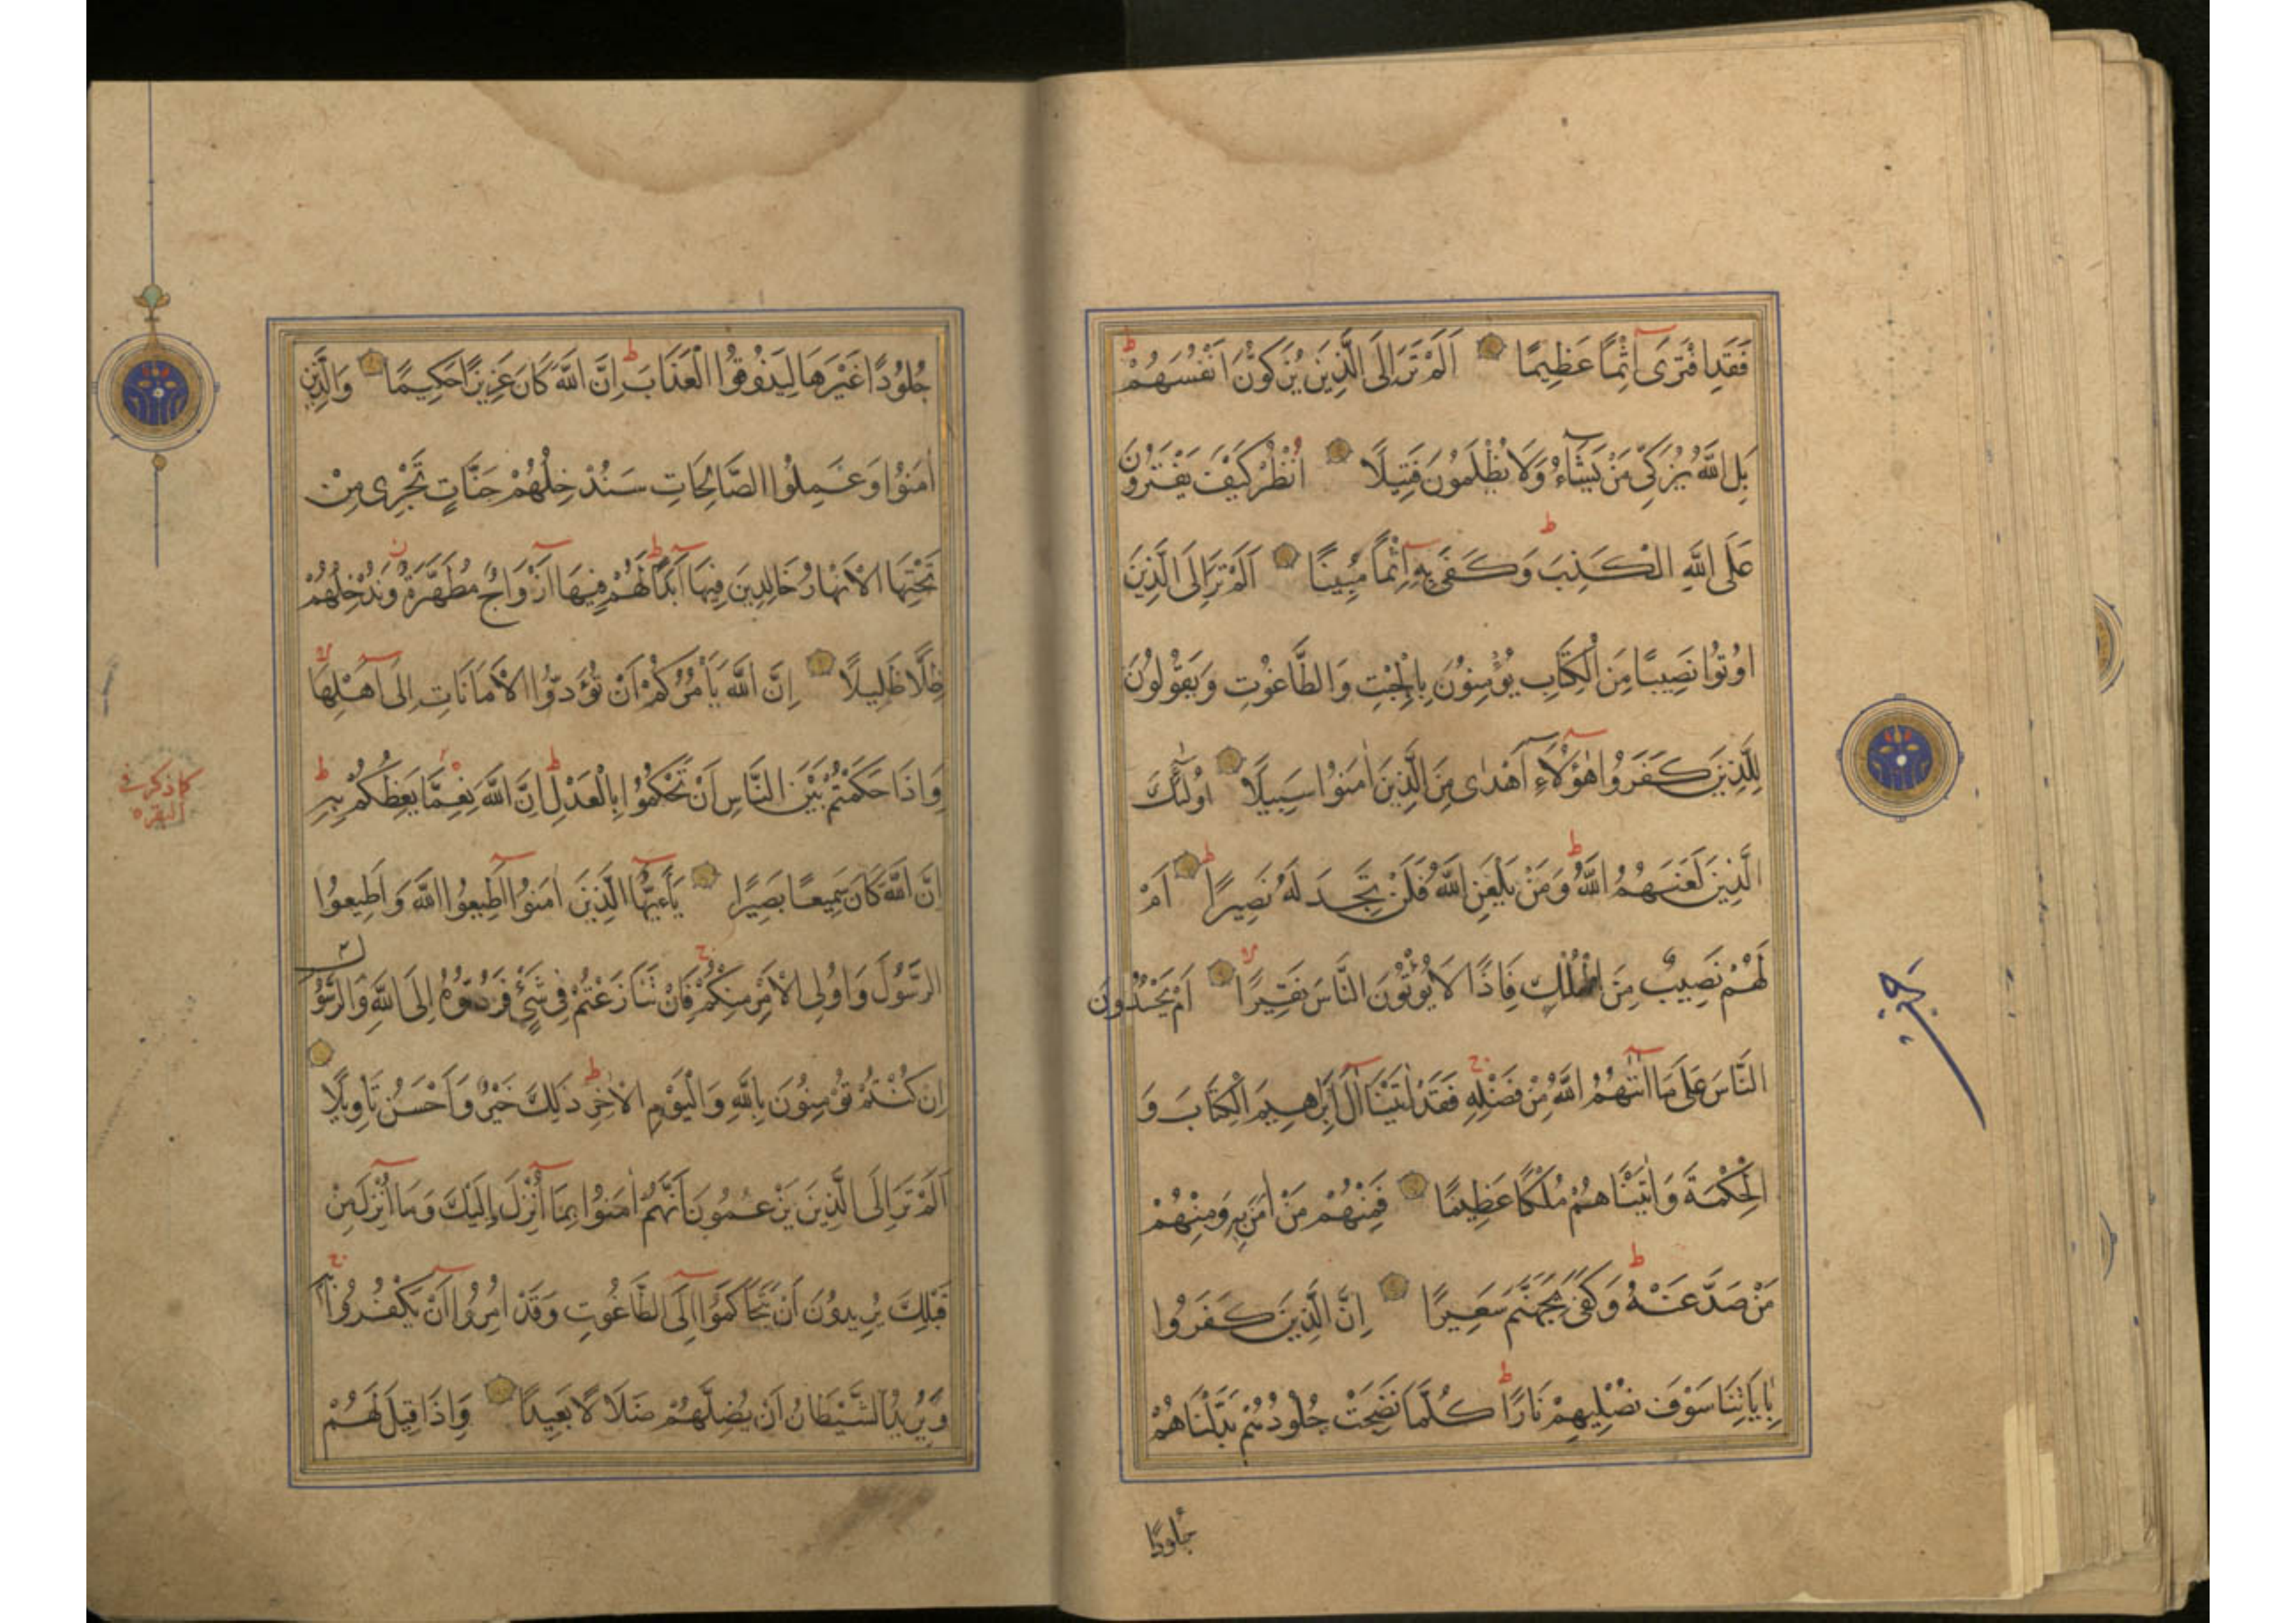 فَقَدِ افْتَرَى اِثْمًا عَظِيمًا اَلَمْ تَرَ اِلَى الَّذِينَ يُزَكُّونَ اَنْفُسَهُمْ ط
بَلِ اللّٰهُ يُزَكِّى مَنْ يَشَاءُ وَلَا يُظْلَمُونَ فَتِيلًا اُنْظُرْ كَيْفَ يَفْتَرُونَ
عَلَى اللّٰهِ الْكَذِبَ ط وَكَفَى بِهِ اِثْمًا مُبِينًا اَلَمْ تَرَ اِلَى الَّذِينَ
اُوتُوا نَصِيبًا مِنَ الْكِتَابِ يُؤْمِنُونَ بِالْجِبْتِ وَالطَّاغُوتِ وَيَقُولُونَ
لِلَّذِينَ كَفَرُوا هٰؤُلَاءِ اَهْدٰى مِنَ الَّذِينَ اٰمَنُوا سَبِيلًا اُولٰئِكَ
الَّذِينَ لَعَنَهُمُ اللّٰهُ ط وَمَنْ يَلْعَنِ اللّٰهُ فَلَنْ تَجِدَ لَهُ نَصِيرًا ط اَمْ
لَهُمْ نَصِيبٌ مِنَ الْمُلْكِ فَاِذًا لَا يُؤْتُونَ النَّاسَ نَقِيرًا لا اَمْ يَحْسُدُونَ
النَّاسَ عَلَى مَا اٰتٰهُمُ اللّٰهُ مِنْ فَضْلِهِ ج فَقَدْ اٰتَيْنَا اٰلَ اِبْرٰهِيمَ الْكِتَابَ وَ
الْحِكْمَةَ وَاٰتَيْنَاهُمْ مُلْكًا عَظِيمًا فَمِنْهُمْ مَنْ اٰمَنَ بِهِ وَمِنْهُمْ
مَنْ صَدَّ عَنْهُ ط وَكَفَى بِجَهَنَّمَ سَعِيرًا اِنَّ الَّذِينَ كَفَرُوا
بِاٰيَاتِنَا سَوْفَ نُصْلِيهِمْ نَارًا ط كُلَّمَا نَضِجَتْ جُلُودُهُمْ بَدَّلْنَاهُمْ
جُلُودًا
جُلُودًا غَيْرَهَا لِيَذُوقُوا الْعَذَابَ ط اِنَّ اللّٰهَ كَانَ عَزِيزًا حَكِيمًا وَالَّذِينَ
اٰمَنُوا وَعَمِلُوا الصَّالِحَاتِ سَنُدْخِلُهُمْ جَنَّاتٍ تَجْرِى مِنْ
تَحْتِهَا الْاَنْهَارُ خَالِدِينَ فِيهَا اَبَدًا ط لَهُمْ فِيهَا اَزْوَاجٌ مُطَهَّرَةٌ ز وَنُدْخِلُهُمْ
ظِلًّا ظَلِيلًا اِنَّ اللّٰهَ يَاْمُرُكُمْ اَنْ تُؤَدُّوا الْاَمَانَاتِ اِلَى اَهْلِهَا لا
وَاِذَا حَكَمْتُمْ بَيْنَ النَّاسِ اَنْ تَحْكُمُوا بِالْعَدْلِ ط اِنَّ اللّٰهَ نِعِمَّا يَعِظُكُمْ بِهِ ط
كما ذكر فى
البقره
اِنَّ اللّٰهَ كَانَ سَمِيعًا بَصِيرًا يَاءَيُّهَا الَّذِينَ اٰمَنُوا اَطِيعُوا اللّٰهَ وَاَطِيعُوا
الرَّسُولَ وَاُولِى الْاَمْرِ مِنْكُمْ ج فَاِنْ تَنَازَعْتُمْ فِى شَىْءٍ فَرُدُّوهُ اِلَى اللّٰهِ وَالرَّسُولِ
اِنْ كُنْتُمْ تُؤْمِنُونَ بِاللّٰهِ وَالْيَوْمِ الْاٰخِرِ ط ذٰلِكَ خَيْرٌ وَاَحْسَنُ تَاْوِيلًا
اَلَمْ تَرَ اِلَى الَّذِينَ يَزْعُمُونَ اَنَّهُمْ اٰمَنُوا بِمَا اُنْزِلَ اِلَيْكَ وَمَا اُنْزِلَ مِنْ
قَبْلِكَ يُرِيدُونَ اَنْ يَتَحَاكَمُوا اِلَى الطَّاغُوتِ وَقَدْ اُمِرُوا اَنْ يَكْفُرُوا بِهِ ج
وَيُرِيدُ الشَّيْطَانُ اَنْ يُضِلَّهُمْ ضَلَالًا بَعِيدًا وَاِذَا قِيلَ لَهُمْ